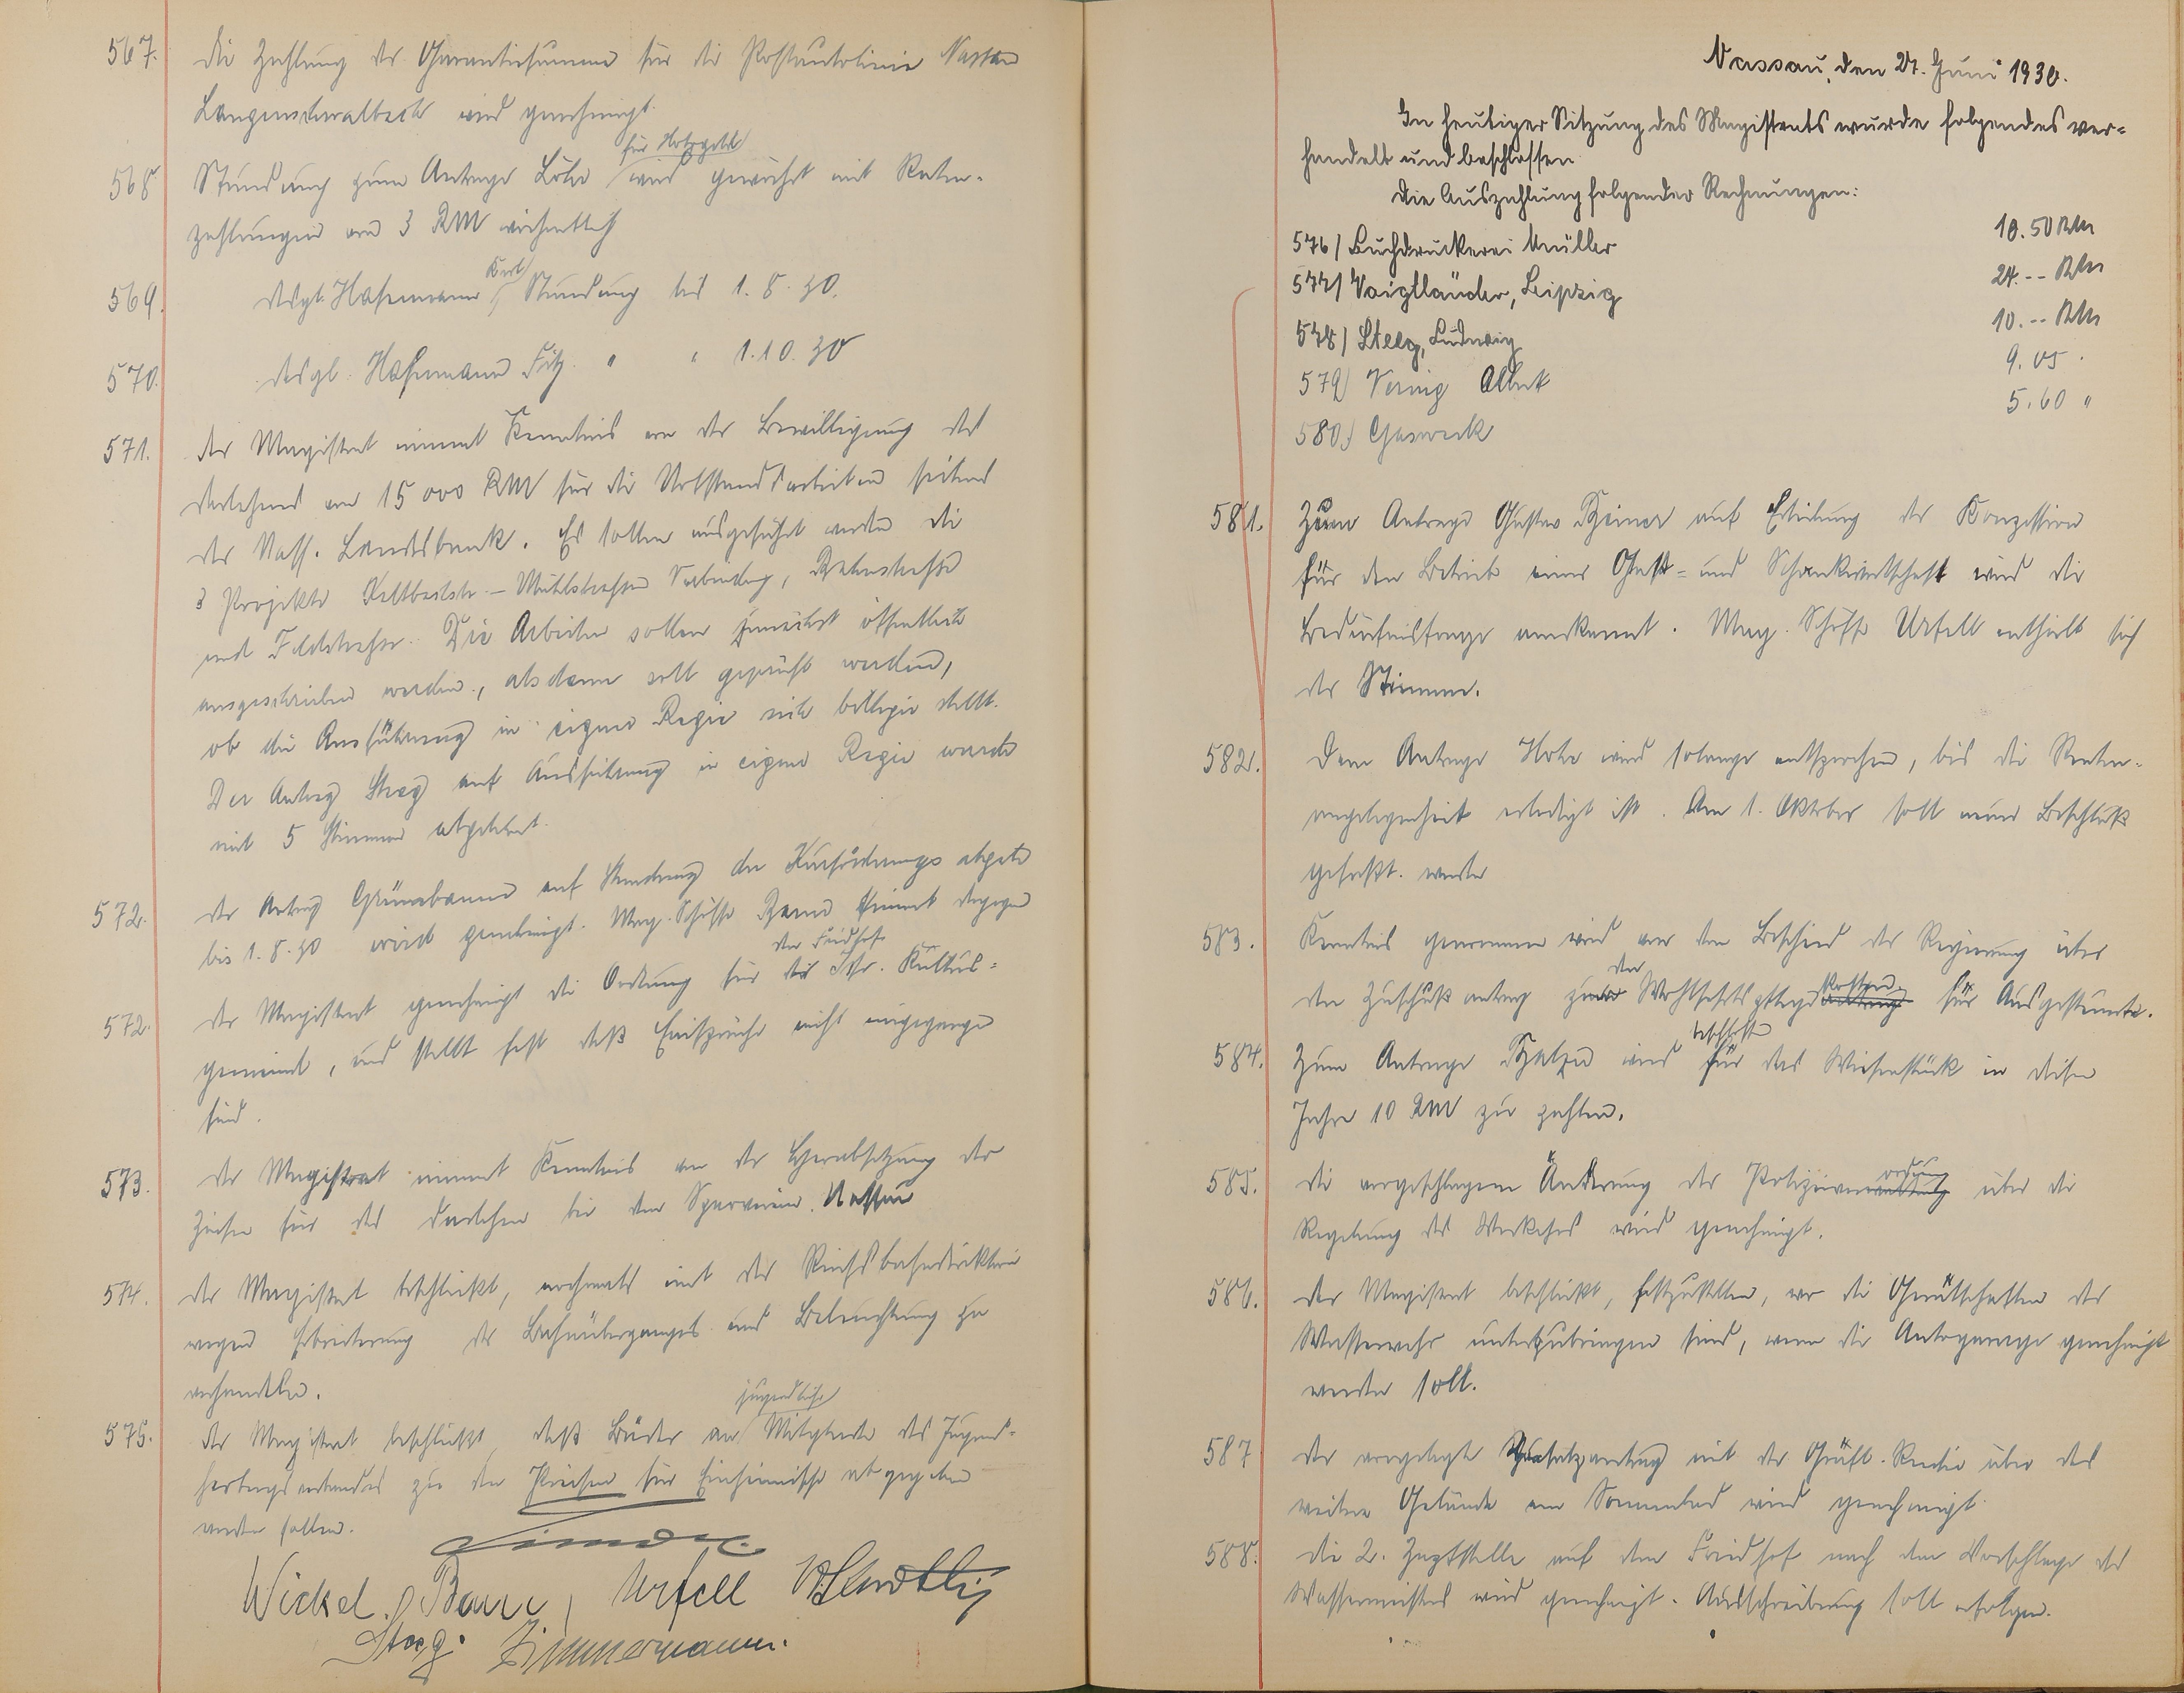 567. Die Zahlung der Garantiesumme für die Postautolinie Nassau
Langenschwalbach wird genehmigt.
568 Stundung zum Antrage Löhr für Notgeld wird gewährt mit Raten-
zahlungen von 3 RM wöchentlich
569. desgl. Hofmann Karl, Stundung bis 1.8.30.
570. desgl. Hofmann Fritz " " 1.10.30
571. Der Magistrat nimmt Kenntnis von der Bewilligung des
Darlehens von 15 000 RM für die Notstandsarbeiten seitens
der Nass. Landesbank. Es sollen ausgeführt werden die
3 Projekte Kaltbachstr. – Mühlstrassen Verbindung,
und Feldstrasse. Die Arbeiten sollen zunächst öffentlich
ausgeschrieben werden, alsdann soll geprüft werden,
ob die Ausführung in eigner Regie sich billiger stellt.
Der Antrag Steeg auf Ausführung in eigner Regie wurde
mit 5 Stimmen abgelehnt.
572. Der Antrag Grünebaum auf Stundung der Kurförderungsabgabe
bis 1.8.30 wird genehmigt. Mag. Schöffe stimmt dagegen
572. Der Magistrat genehmigt die Ordnung für den Friedhof der Isr. Kultus-
gemeinde, und stellt fest daß Einsprüche nicht eingegangen
sind.
573. Der Magistrat nimmt Kenntnis von der Herabsetzung der
Zinsen für das Darlehen bei dem Sparverein Nassau
574. Der Magistrat beschließt, nochmals mit der Reichsbahndirektion
wegen Erbreiterung des Bahnüberganges und Beleuchtung zu
verhandeln.
575. Der Magistrat beschließt, daß Bäder an jugendliche Mitglieder des Jugend-
herbergsverbandes zu den Preisen für Einheimische abgegeben
werden sollen.
Wickel. Urfell
Steeg. Zimmermann.
Nassau, den 27. Juni 1930.
In heutiger Sitzung des Magistrats wurde folgendes ver-
handelt und beschlossen
Die Auszahlung folgender Rechnungen:
576/ Buchdruckerei Müller 10.50 RM
577/ Voigtländer, Leipzig 24.-- RM
578/ Steeg, Ludwig 10.-- RM
579) Albert 9.05
580.) Gaswerk 5.60 "
581. Zum Antrage Gustav auf Erteilung der Konzession
für den Betrieb einer Gast- und Schankwirtschaft wird die
Bedürfnisfrage anerkannt. Mag. Schöffe Urfell enthielt sich
der Stimme.
582. Dem Antrage wird solange entsprochen, bis die Renten-
angelegenheit erledigt ist. Am 1. Oktober soll neuer Beschluß
gefaßt. werden
583. Kenntnis genommen wird von dem Bescheid der Regierung über
den Zuschußantrag zu den Wohlfahrtspflegekosten für Ausgesteuerte.
584. Zum Antrage wird beschlossen für das Wiesenstück in diesem
Jahre 10 RM zu zahlen.
585. Die vorgeschlagene Änderung der Polizeiverordnung über die
Regelung des Verkehrs wird genehmigt.
586. Der Magistrat beschließt, festzustellen, wo die Gerätschaften der
Wasserwehr unterzubringen sind, wenn die Autogarage genehmigt
werden soll.
587 Der vorgelegte Zusatzvertrag mit der Gräfl. Rentei über das
weitere Gelände am Sonnenbad wird genehmigt
588. Die 2. Zapfstelle auf dem Friedhof nach dem Vorschlage des
Wassermeisters wird genehmigt. Ausschreibung soll erfolgen.